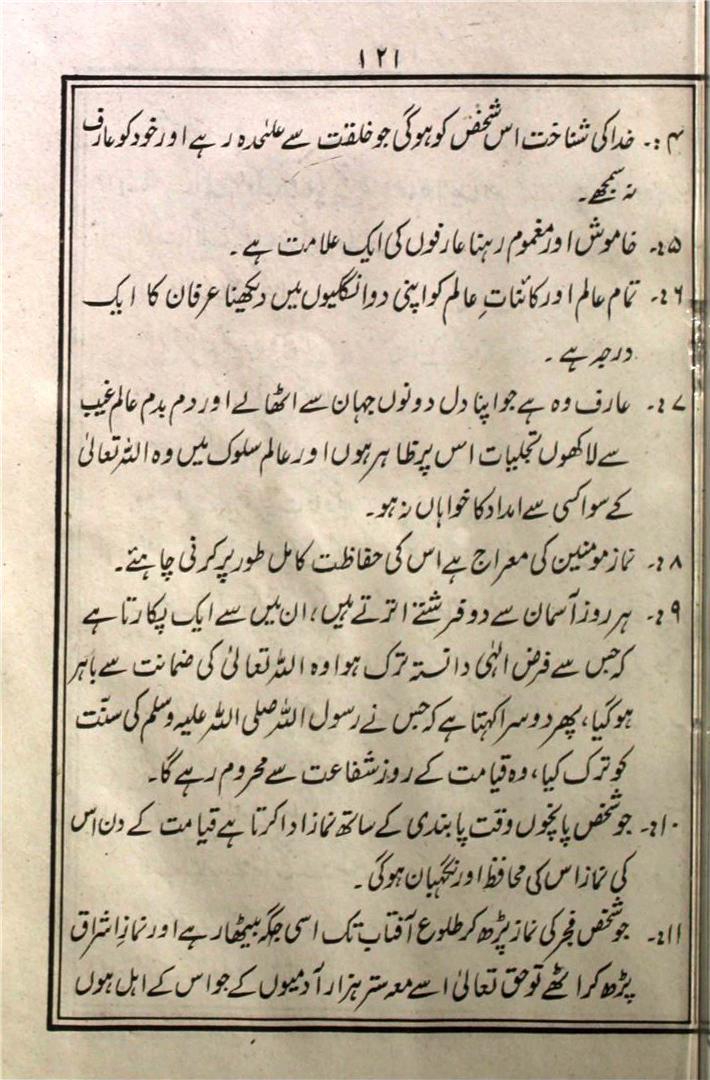 ۱۲۱
۴:۔ خدا کی شناخت اس شخص کو ہوگی جو خلقت سے علٰحدہ رہے اور خود کو عارف
نہ سمجھے۔
۵:۔ خاموش اور مغموم رہنا عارفوں کی ایک علامت ہے۔
۶:۔ تمام عالم اور کائناتِ عالم کو اپنی دو انگلیوں میں دیکھنا عرفان کا ایک
درجہ ہے۔
۷:۔ عارف وہ ہے جو اپنا دل دونوں جہان سے اٹھالے اور دم بدم عالم غیب
سے لاکھوں تجلیات اس پر ظاہر ہوں اور عالم سلوک میں وہ اللہ تعالیٰ
کے سوا کسی سے امداد کا خواہاں نہ ہو۔
۸:۔ نماز مومنین کی معراج ہے اس کی حفاظت کامل طور پر کرنی چاہئے۔
۹:۔ ہر روز آسمان سے دو فرشتے اترتے ہیں، ان میں سے ایک پکارتا ہے
کہ جس سے فرض الٰہی دانستہ ترک ہوا وہ اللہ تعالیٰ کی ضمانت سے باہر
ہوگیا، پھر دوسرا کہتا ہے کہ جس نے رسول اللہ صلی اللہ علیہ وسلم کی سنّت
کو ترک کیا، وہ قیامت کے روز شفاعت سے محروم رہے گا۔
۱۰:۔ جو شخص پانچوں وقت پابندی کے ساتھ نماز ادا کرتا ہے قیامت کے دن اس
کی نماز اس کی محافظ اور نگہبان ہوگی۔
۱۱:۔ جو شخص فجر کی نماز پڑھ کر طلوع آفتاب تک اسی جگہ بیٹھا رہے اور نمازِ اشراق
پڑھ کر اٹھے تو حق تعالیٰ اسے معہ ستر ہزار آدمیوں کے جو اس کے اہل ہوں